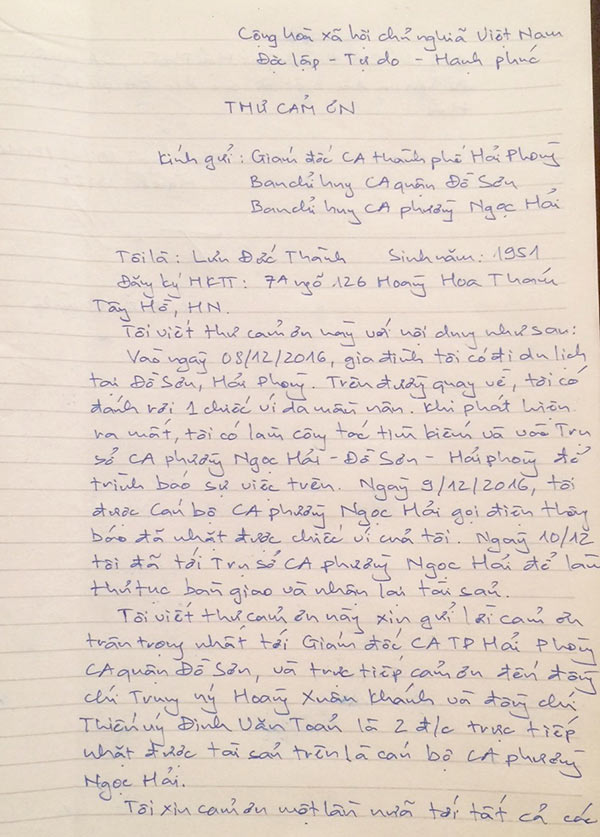 Cộng hoà xã hội chủ nghiã Việt Nam
Độc lập - Tự do - Hạnh phúc
THƯ CẢM ƠN
Kính gửi : Giám đốc CA thành phố Hải Phòng
Ban chỉ huy CA quận Đồ Sơn
Ban chỉ huy CA phường Ngọc Hải
Tôi là : Lưu Đức Thành Sinh năm : 1951
Đăng ký HKTT : 7A ngõ 126 Hoàng Hoa Thám
Tây Hồ, HN.
Tôi viết thư cảm ơn này với nội dung như sau:
Vào ngày 08/12/2016, gia đình tôi có đi du lịch
tại Đồ Sơn, Hải Phòng. Trên đường quay về, tôi có
đánh rơi 1 chiếc ví da màu nâu. Khi phát hiện
ra mất, tôi có làm công tác tìm kiếm và vào Trụ
sở CA phường Ngọc Hải - Đồ Sơn - Hải phòng để
trình báo sự việc trên. Ngày 9/12/2016, tôi
được Cán bộ CA phường Ngọc Hải gọi điện thông
báo đã nhặt được chiếc ví của tôi. Ngày 10/12
tôi đã tới Trụ sở CA phường Ngọc Hải để làm
thủ tục bàn giao và nhận lại tài sản.
Tôi viết thư cảm ơn này xin gửi lời cảm ơn
trân trọng nhất tới Giám đốc CA TP Hải Phòng
CA quận Đồ Sơn, và trực tiếp cảm ơn đến đồng
chí Trung úy Hoàng Xuân Khánh và đồng chí
Thiếu úy Đinh Văn Toản là 2 đ/c trực tiếp
nhặt được tài sản trên là cán bộ CA phường
Ngọc Hải.
Tôi xin cảm ơn một lần nữa tới tất cả các